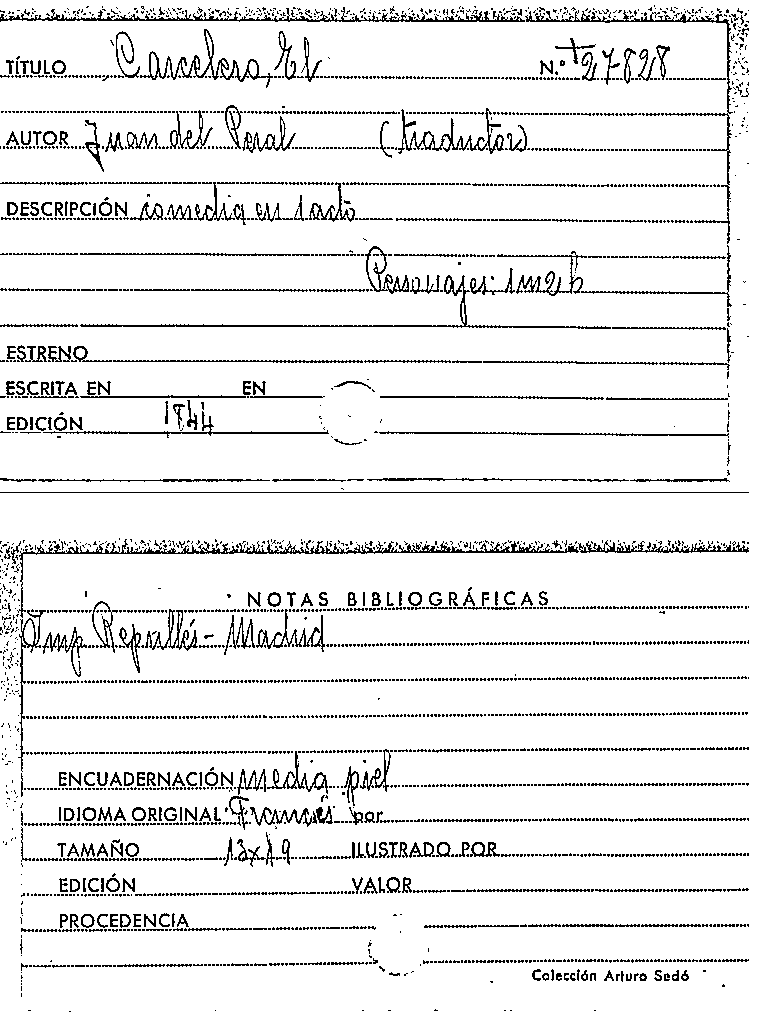 TÍTULO Carcelero, El N.º T27-828
AUTOR Juan del Peral (traductor)
DESCRIPCIÓN comedia en 1 acto
Personajes: 1m 2 h
ESTRENO
ESCRITA EN EN
EDICIÓN 1844
NOTAS BIBLIOGRÁFICAS
Imp Repullés - Madrid
ENCUADERNACIÓN media piel
IDIOMA ORIGINAL Francés por
TAMAÑO 13x19 ILUSTRADO POR
EDICIÓN VALOR
PROCEDENCIA
Colección Arturo Sedó